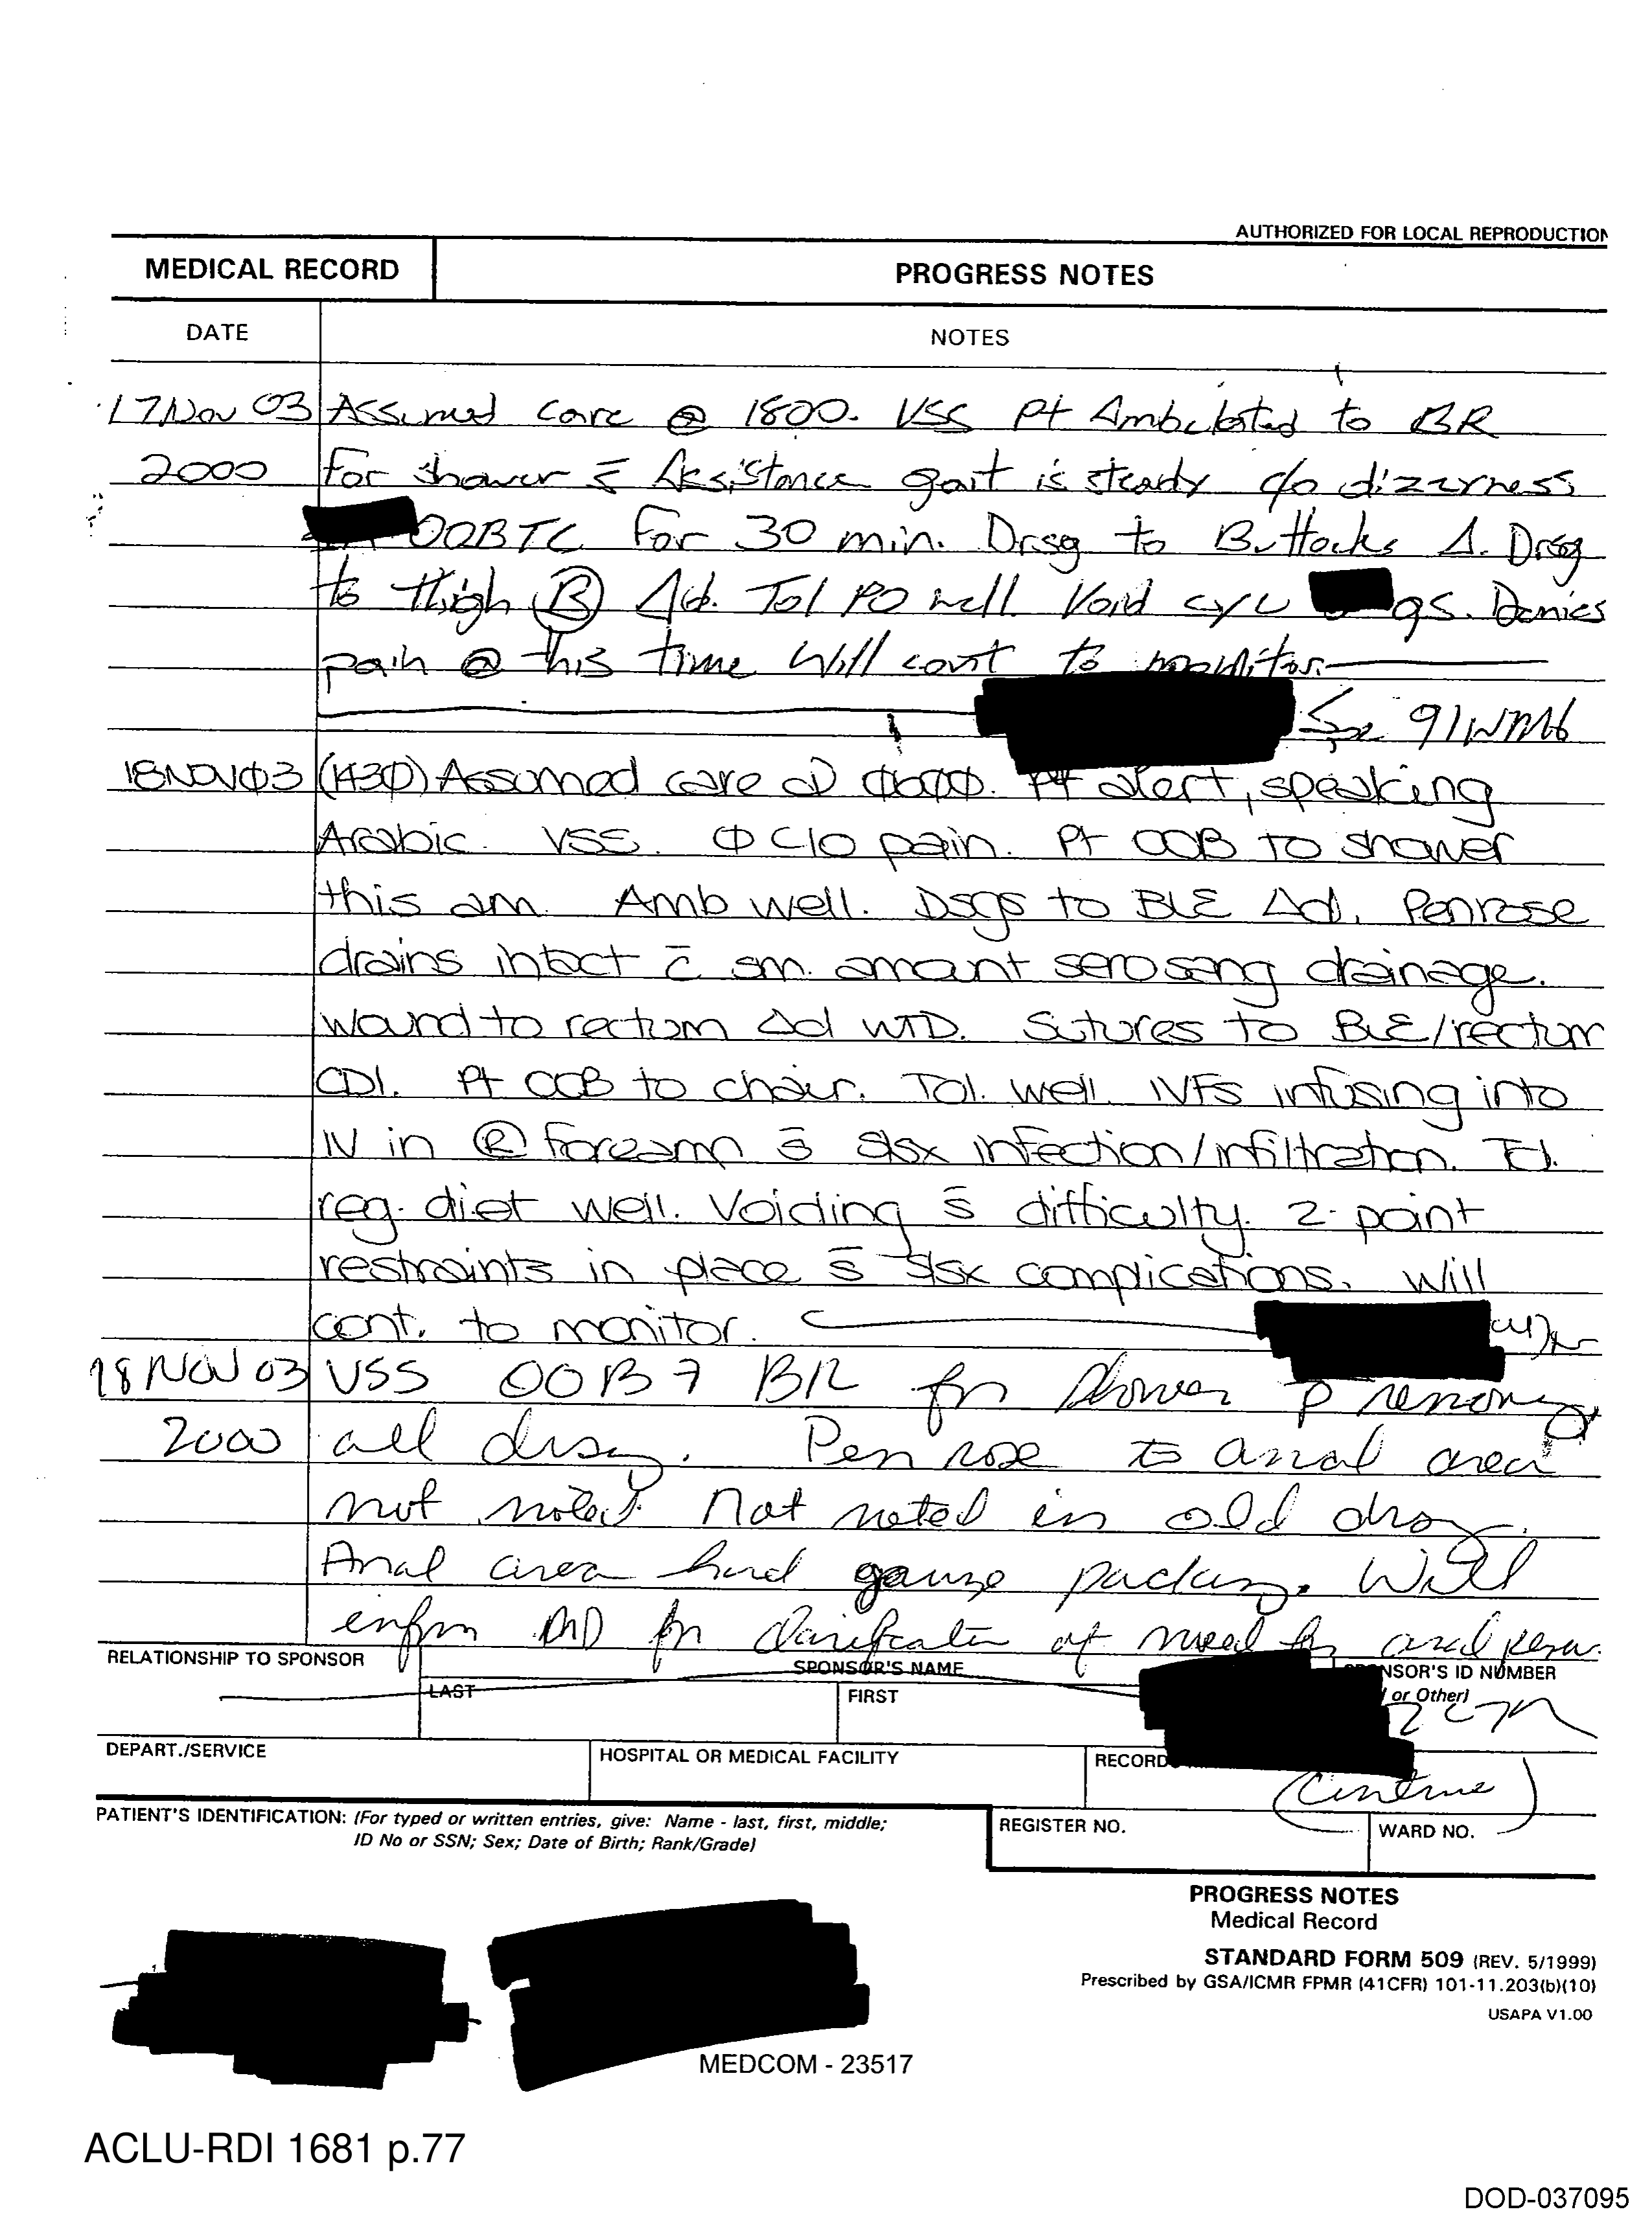 AUTHORIZED FOR LOCAL REPRODUCTION
MEDICAL RECORD
PROGRESS NOTES
DATE
NOTES
17 Nov 03 Assumed care @ 1800. VSS Pt Ambulated to BR
2000 For shower c̄ Assistance gait is steady c/o dizzyness
OOBTC For 30 min. Drsg to Buttocks Δ. Drsg
to thigh Ⓑ Δd. Tol PO well. Void c/y/u qs. Denies
pain @ this time Will cont to monitor.
91WM6
18NOVØ3 (143Ø) Assumed care @ Ø6ØØ. Pt alert, speaking
Arabic. VSS. Ø C/O pain. Pt OOB to shower
this am. Amb well. Dsgs to BLE Δd. Penrose
drains intact c̄ sm. amount serosang drainage.
Wound to rectum Δd WTD. Sutures to BLE/rectum
CDI. Pt OOB to chair. Tol. well. IVFs infusing into
IV in Ⓡ forearm s̄ s/sx infection/infiltration. Tol.
reg. diet well. Voiding s̄ difficulty. 2-point
restraints in place s̄ s/sx complications. Will
cont. to monitor.
18 NOV 03 VSS OOB BR for shower p̄ removing
2000 all drsg. Penrose to anal area
not noted. Not noted in old drsg.
Anal area had gauze packing. Will
inform MD for clarification of need for anal
RELATIONSHIP TO SPONSOR
SPONSOR'S NAME
LAST
FIRST
NSOR'S ID NUMBER
or Other)
DEPART./SERVICE
HOSPITAL OR MEDICAL FACILITY
RECORD
(Continue)
PATIENT'S IDENTIFICATION: (For typed or written entries, give: Name - last, first, middle;
ID No or SSN; Sex; Date of Birth; Rank/Grade)
REGISTER NO.
WARD NO.
PROGRESS NOTES
Medical Record
STANDARD FORM 509 (REV. 5/1999)
Prescribed by GSA/ICMR FPMR (41CFR) 101-11.203(b)(10)
USAPA V1.00
MEDCOM - 23517
ACLU-RDI 1681 p.77
DOD-037095